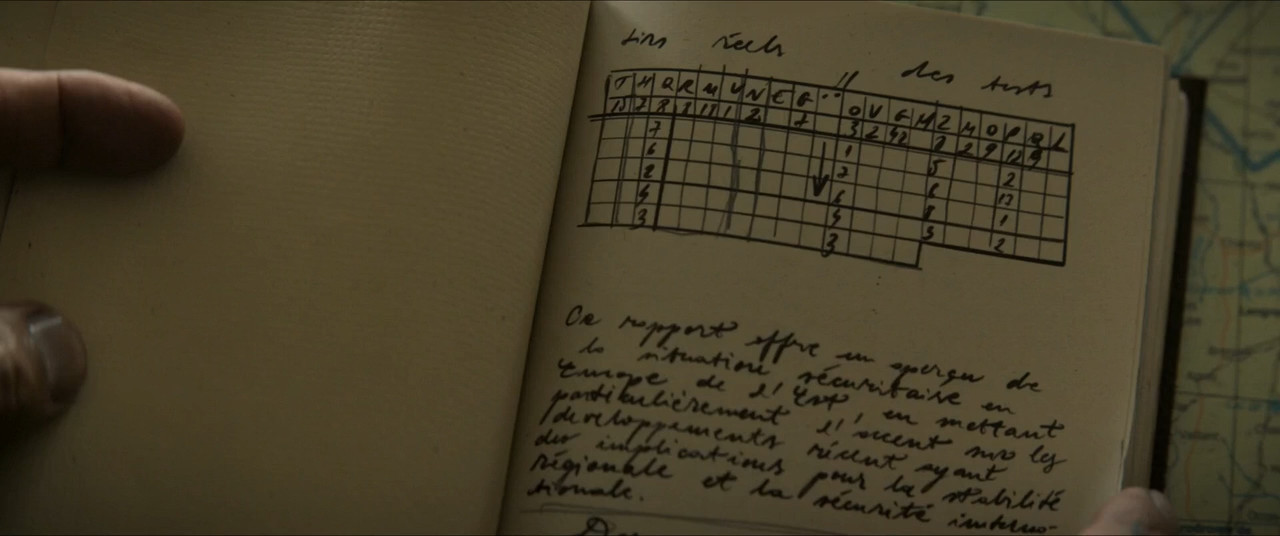 des tests
T H Q R M U N E G O V G H Z M O P Q L
7 1
6 5 2
2 6 6 13
4 4 8 1
3 3 3 2
Ce rapport offre un aperçu de
la situation sécuritaire en
Europe de l'Est, en mettant
particulièrement l'accent sur les
développements récent ayant
des implications pour la stabilité
régionale et la sécurité interna-
tionale.